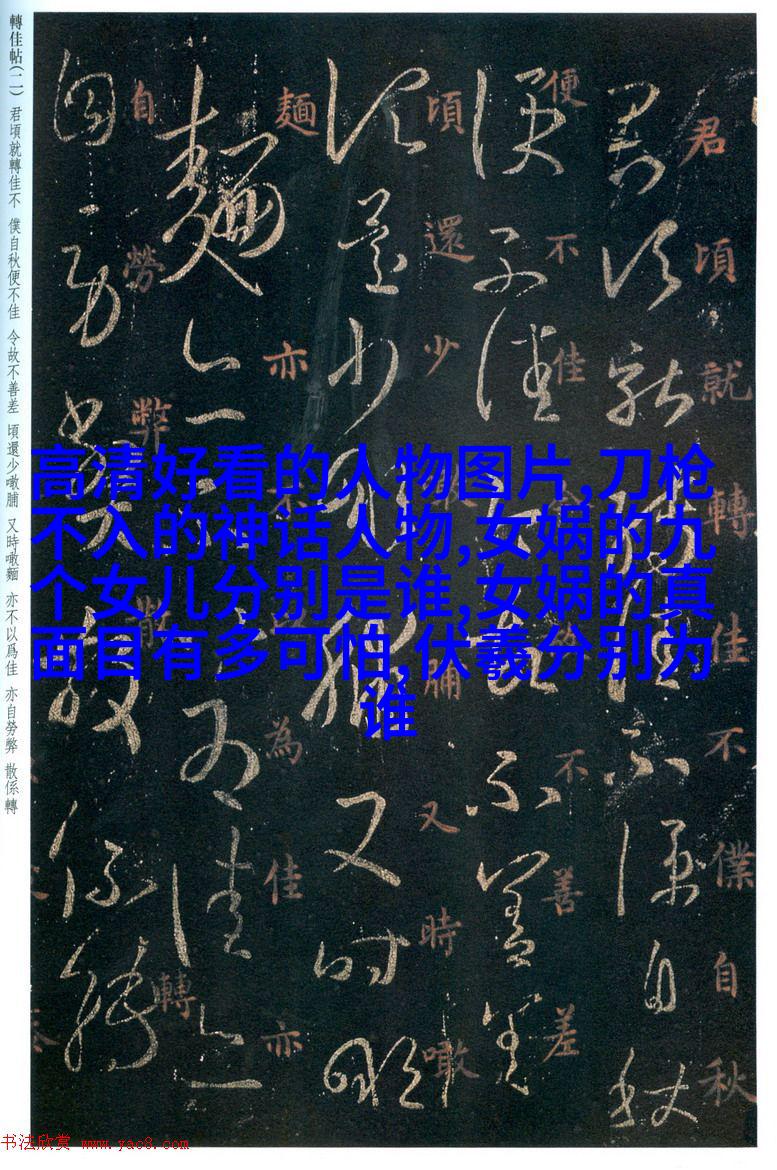 轉佳帖(二) 君頃就轉佳不 僕自秋便不佳 令故不善差 頃還少噉脯 又時噉麵 亦不以爲佳 亦自勞弊 散係轉
君頃就轉佳不僕自秋
便不佳今故不善差
頃還少噉脯又時噉
麵亦不以為佳亦
自勞弊散係轉
高清好看的人物图片,刀枪
不入的神话人物,女娲的九
个女儿分别是谁,女娲的真
面目有多可怕,伏羲分别为
谁
书法欣赏 www.yac8.com